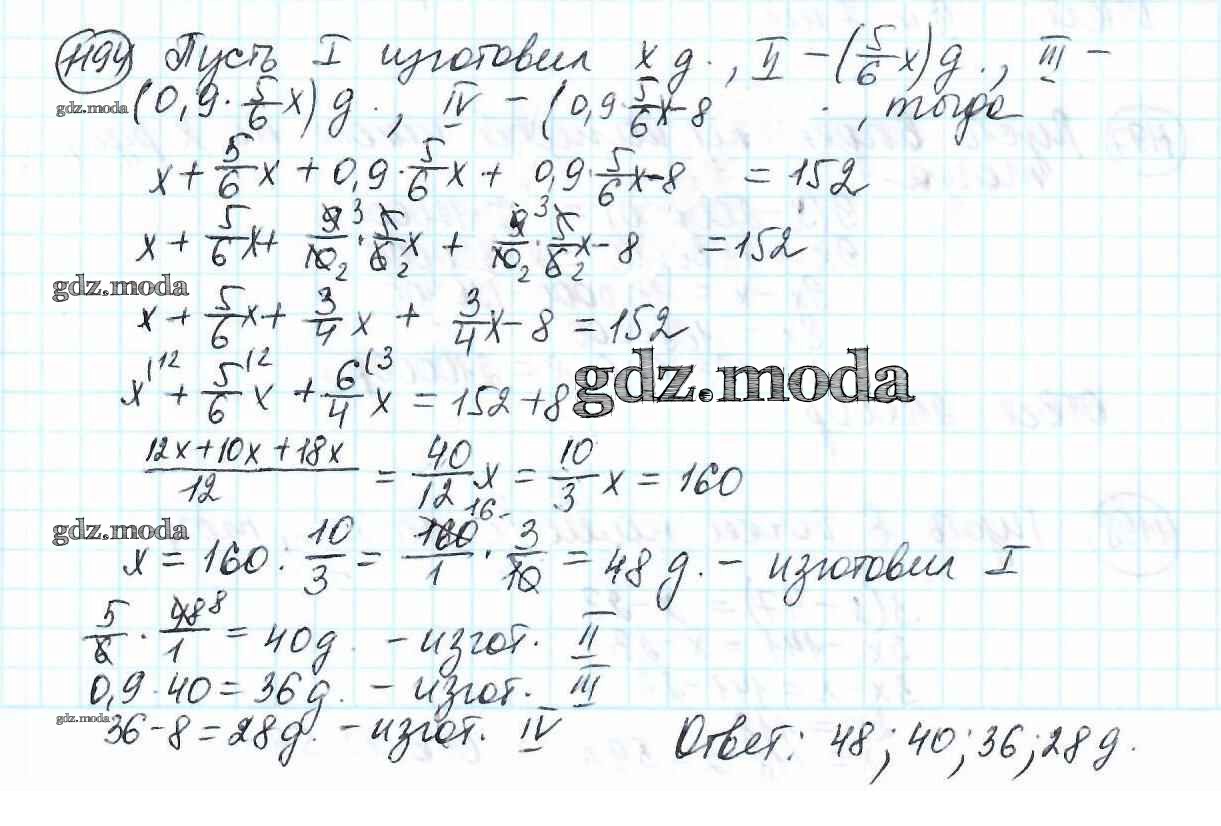 1194 Пусть I изготовил x д., II – (5/6 x) д., III –
gdz.moda (0,9 · 5/6 x) д., IV – (0,9 · 5/6 x – 8 , тогда
x + 5/6 x + 0,9 · 5/6 x + 0,9 · 5/6 x – 8 = 152
x + 5/6 x + 9 3/10 2 · 5/6 2 x + 9 3/10 2 · 5/6 2 x – 8 = 152
gdz.moda
x + 5/6 x + 3/4 x + 3/4 x – 8 = 152
gdz.moda
x (12 + 5/6 (2 x + 6/4 (3 x = 152 + 8
12x + 10x + 18x/12 = 40/12 x = 10/3 x = 160
gdz.moda
x = 160 : 10/3 = 160 16/1 · 3/10 = 48 д. – изготовил I
5/6 · 48 8/1 = 40 д. – изгот. II
0,9 · 40 = 36 д. – изгот. III
gdz.moda 36 – 8 = 28 д. – изгот. IV Ответ: 48; 40; 36; 28 д.